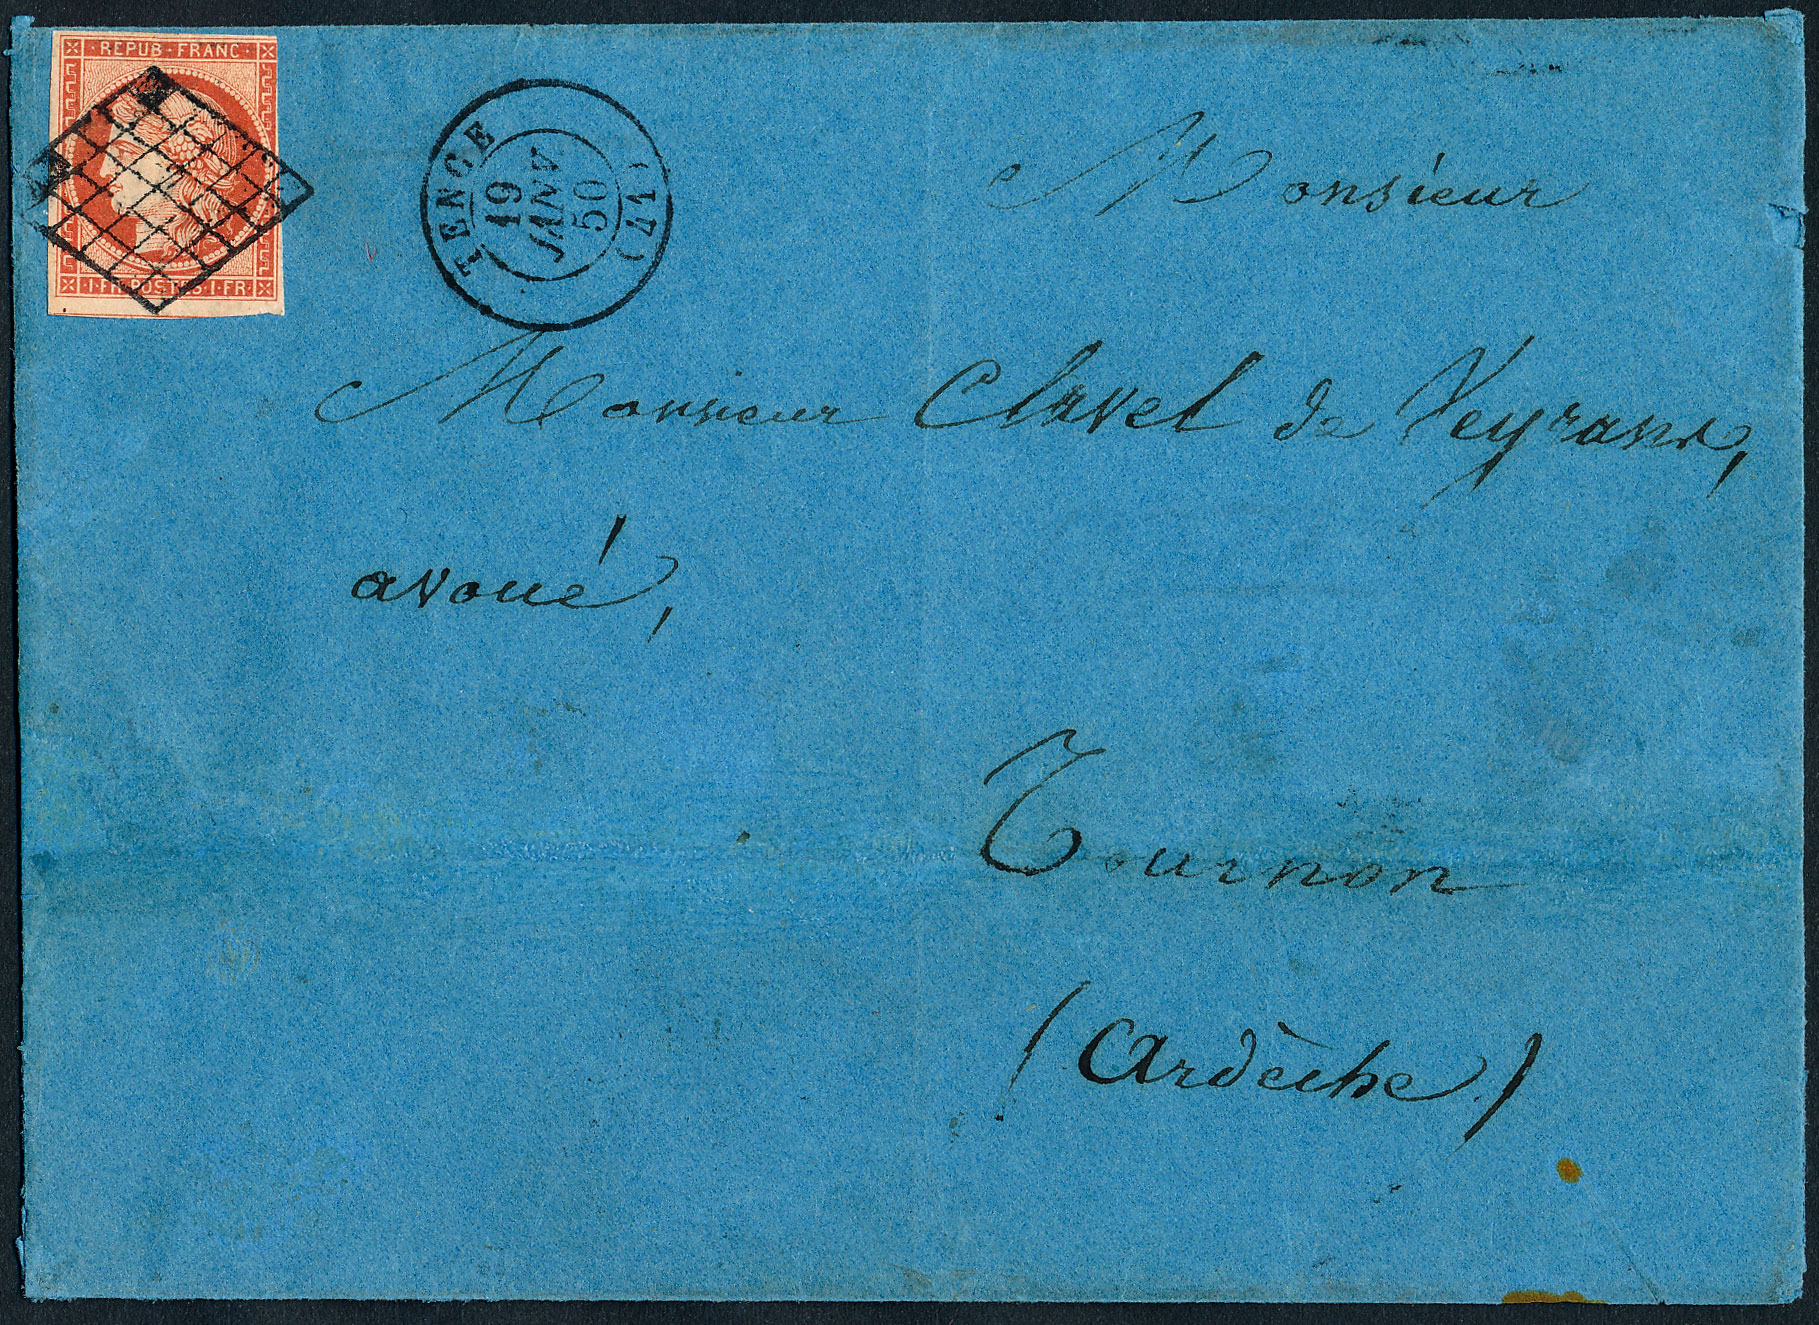 REPUB · FRANC
1 · FR · POSTES · 1 · FR
TENCE (41)
19
JANV
50
Monsieur
Monsieur Clavel de Veyrans,
avoué,
Tournon
(Ardèche)